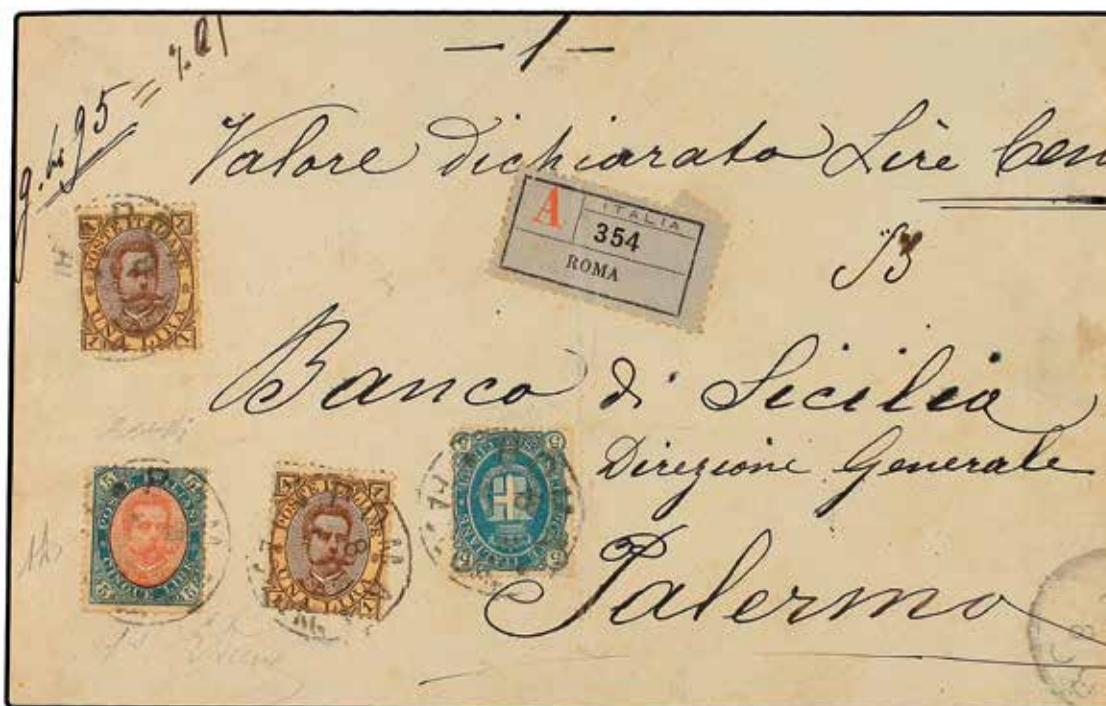 — 1 —
95
Valore dichiarato Lire Cen
A ITALIA
354
ROMA
Banco di Sicilia
Direzione Generale
Palermo
POSTE ITALIANE
UNA LIRA
POSTE ITALIANE
CINQUE LIRE
POSTE ITALIANE
UNA LIRA